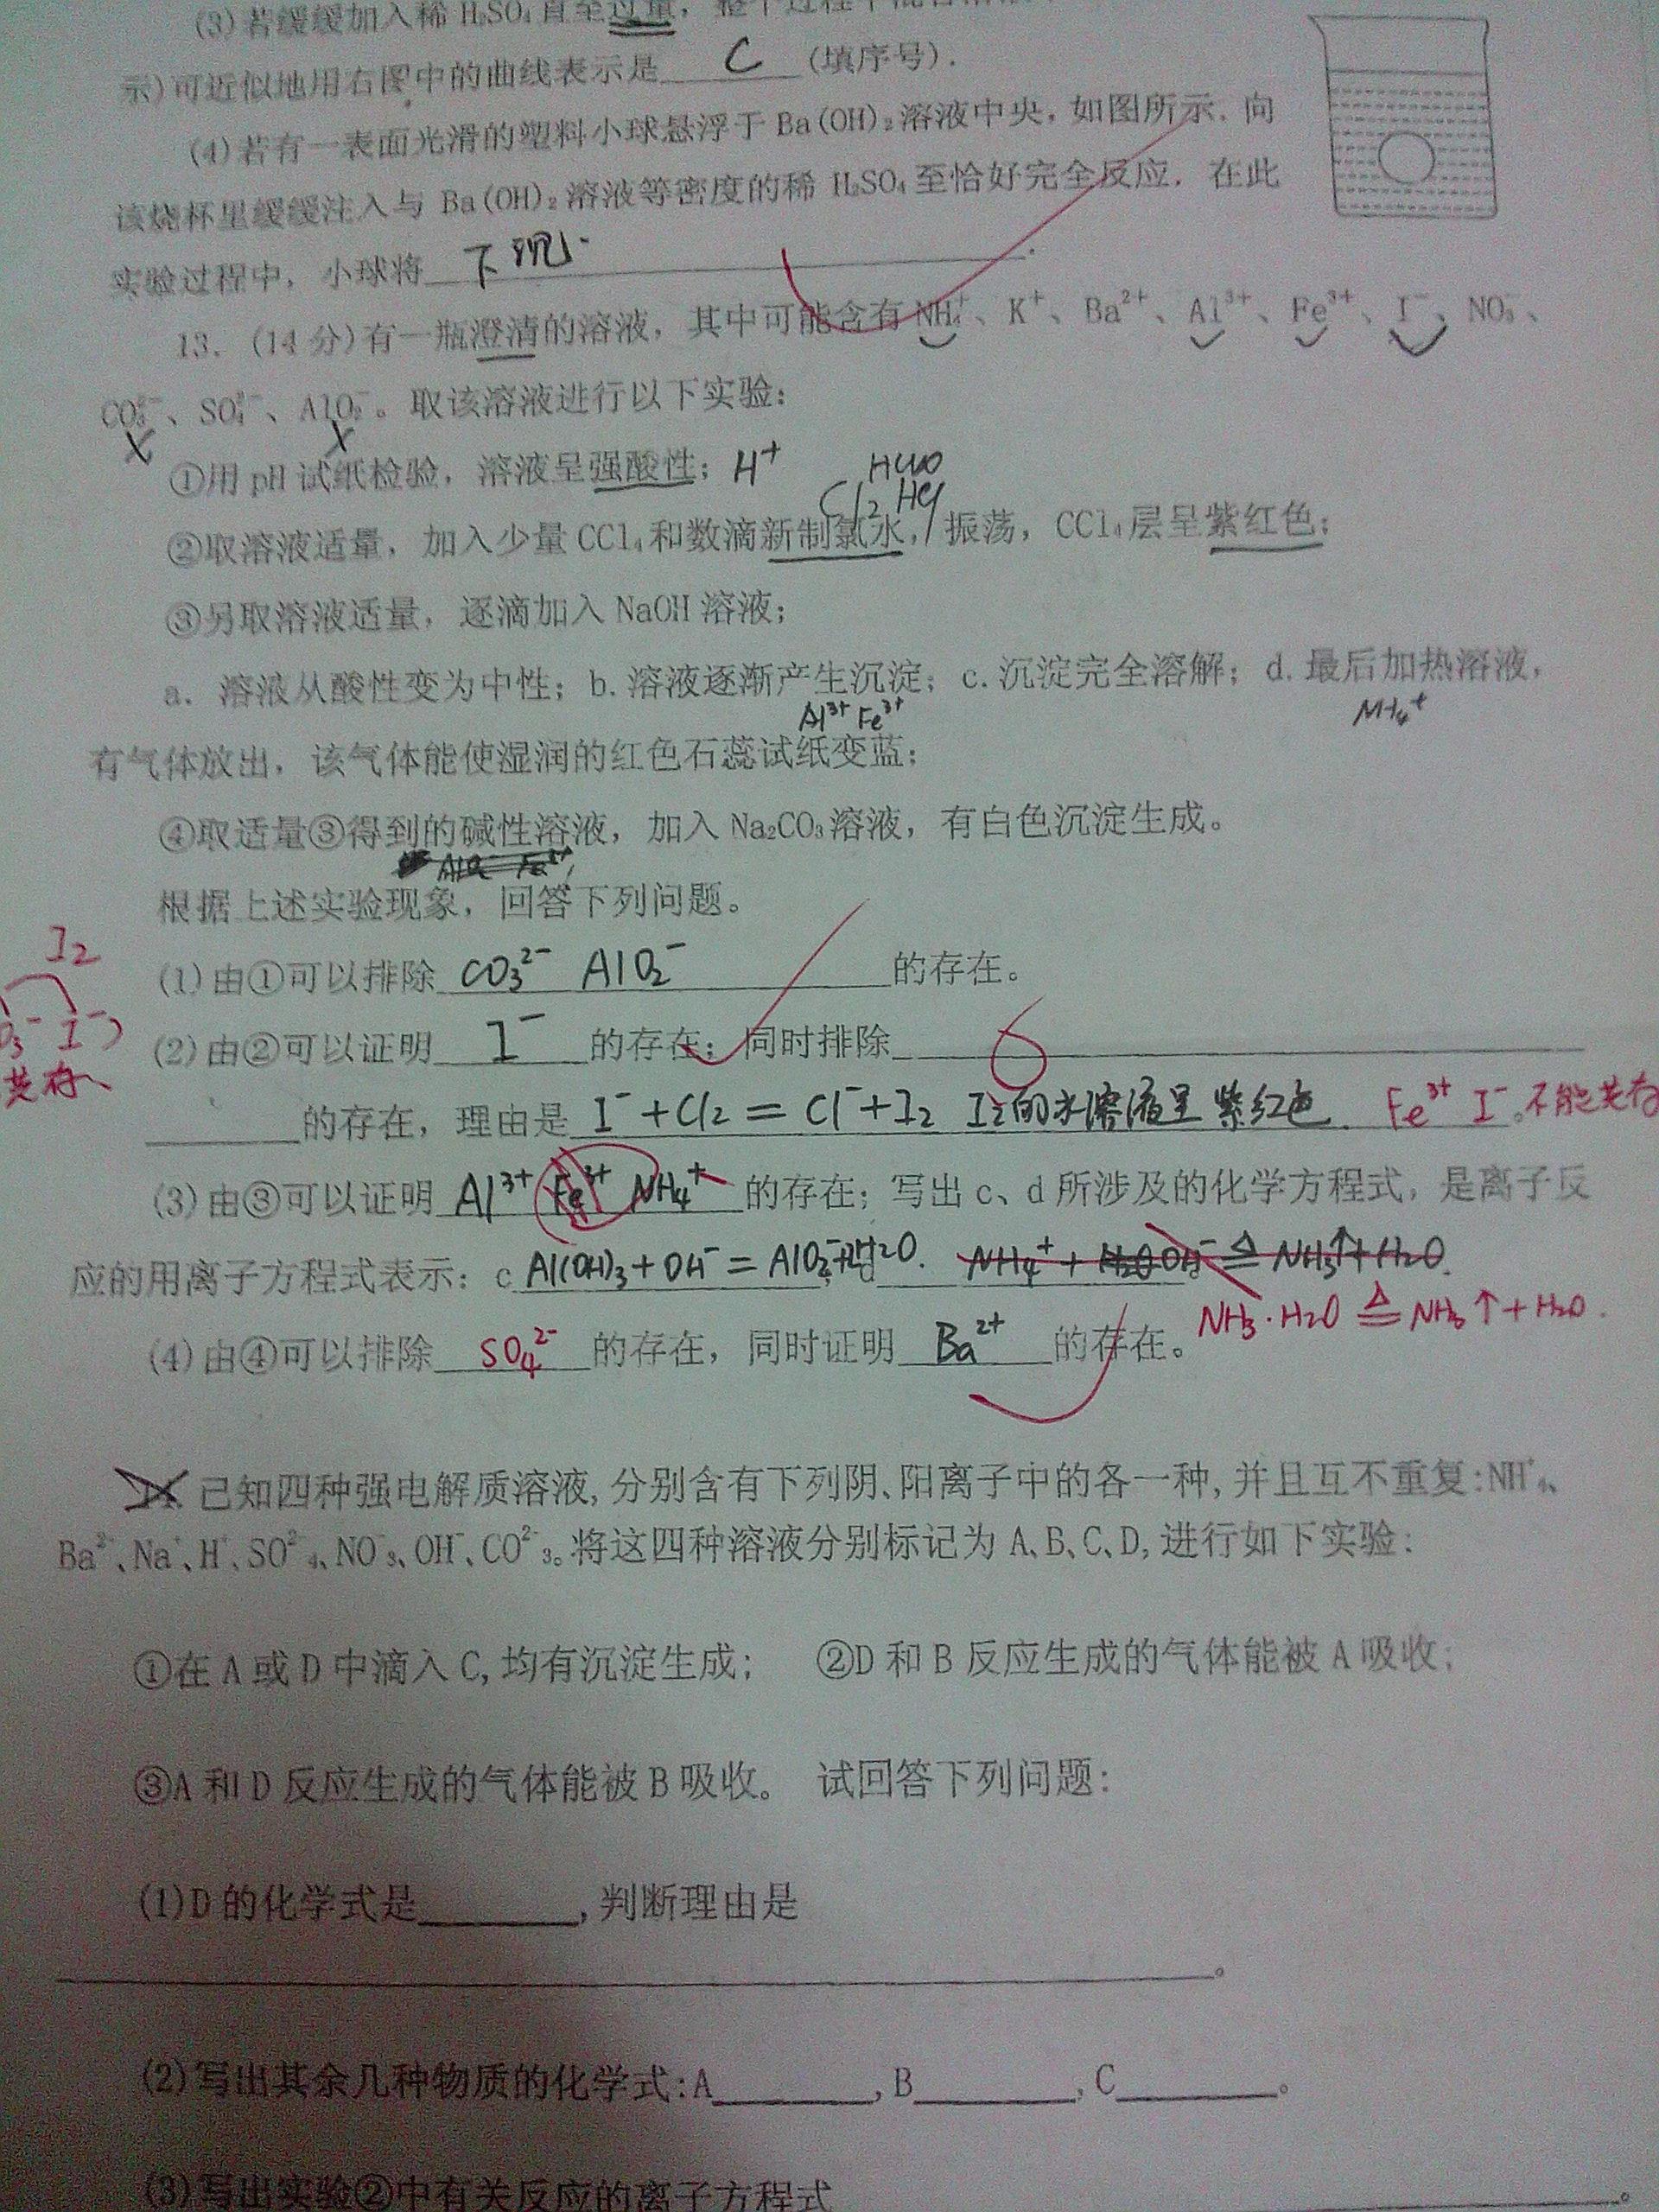 (3)若缓缓加入稀 H₂SO₄ 直至过量，整个过程中
示)可近似地用右图中的曲线表示是 C (填序号).
(4)若有一表面光滑的塑料小球悬浮于 Ba(OH)₂ 溶液中央，如图所示. 向
该烧杯里缓缓注入与 Ba(OH)₂ 溶液等密度的稀 H₂SO₄ 至恰好完全反应. 在此
实验过程中，小球将 下沉 .
13. (14 分)有一瓶澄清的溶液，其中可能含有 NH₄⁺、K⁺、Ba²⁺、Al³⁺、Fe³⁺、I⁻、NO₃⁻、
CO₃²⁻、SO₄²⁻、AlO₂⁻。取该溶液进行以下实验：
X X
①用 pH 试纸检验，溶液呈强酸性； H⁺ HClO
Cl2 HCl
②取溶液适量，加入少量 CCl₄ 和数滴新制氯水，振荡，CCl₄ 层呈紫红色；
③另取溶液适量，逐滴加入 NaOH 溶液；
a. 溶液从酸性变为中性；b. 溶液逐渐产生沉淀；c. 沉淀完全溶解；d. 最后加热溶液，
Al³⁺ Fe³⁺ NH₄⁺
有气体放出，该气体能使湿润的红色石蕊试纸变蓝；
④取适量③得到的碱性溶液，加入 Na₂CO₃ 溶液，有白色沉淀生成。
根据上述实验现象，回答下列问题。
I₂
(1)由①可以排除 CO₃²⁻ AlO₂⁻ 的存在。
(2)由②可以证明 I⁻ 的存在；同时排除
₃⁻ I⁻
共存
的存在，理由是 I⁻+Cl2=Cl⁻+I2 I2的水溶液呈紫红色. Fe³⁺ I⁻不能共存
(3)由③可以证明 Al³⁺ Fe³⁺ NH₄⁺ 的存在；写出 c、d 所涉及的化学方程式，是离子反
应的用离子方程式表示：c Al(OH)₃+OH⁻=AlO₂⁻+2H2O. ；d NH₄⁺+H₂O OH⁻≜NH₃↑+H₂O.
NH₃·H₂O ≜ NH₃↑+H₂O.
(4)由④可以排除 SO₄²⁻ 的存在，同时证明 Ba²⁺ 的存在。
14. 已知四种强电解质溶液,分别含有下列阴、阳离子中的各一种,并且互不重复:NH⁺₄、
Ba²⁺、Na⁺、H⁺、SO²⁻₄、NO⁻₃、OH⁻、CO²⁻₃。将这四种溶液分别标记为 A、B、C、D,进行如下实验:
①在 A 或 D 中滴入 C,均有沉淀生成; ②D 和 B 反应生成的气体能被 A 吸收;
③A 和 D 反应生成的气体能被 B 吸收。 试回答下列问题:
(1)D 的化学式是 ,判断理由是
。
(2)写出其余几种物质的化学式:A ,B ,C 。
(3)写出实验②中有关反应的离子方程式 。